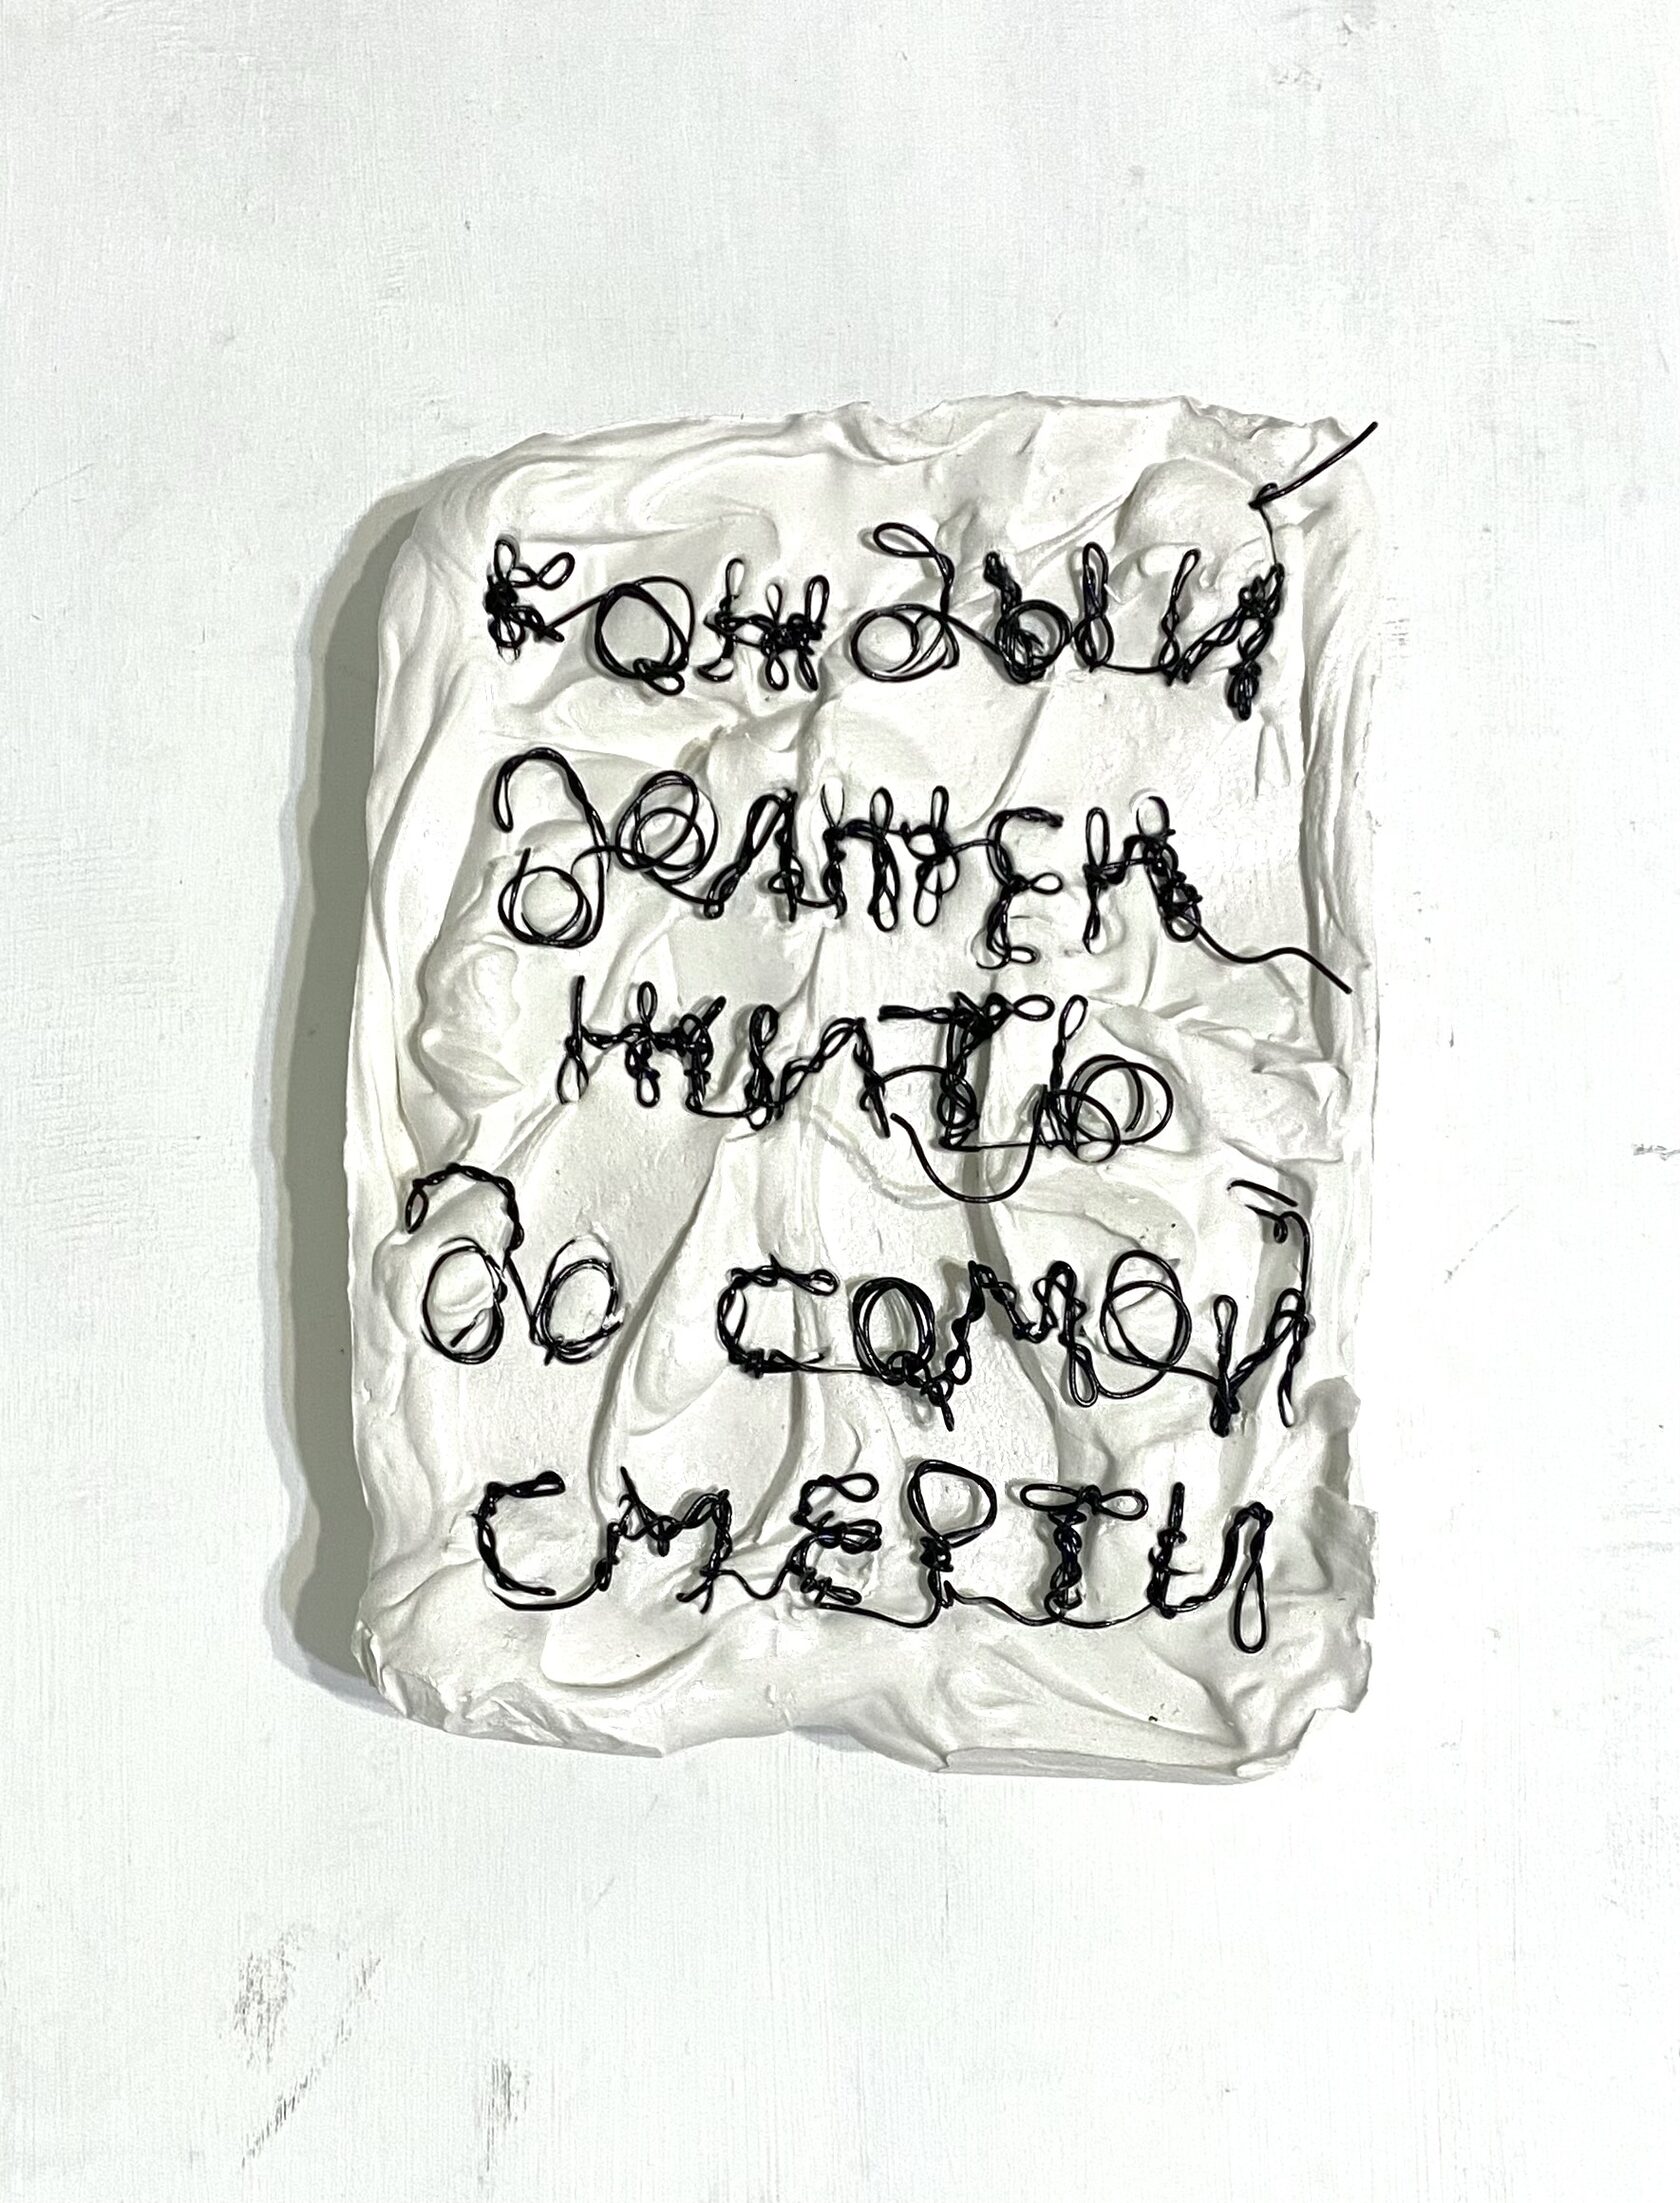 каждый
должен
жить
до самой
смерти